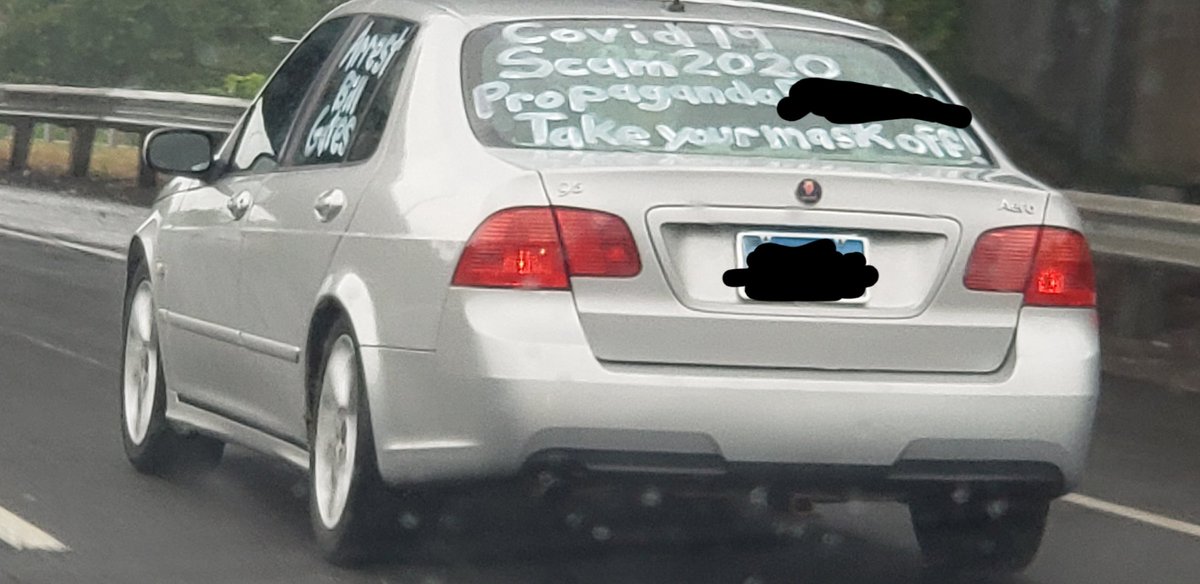 Arrest
Bill
Gates
Covid 19
Scam2020
Propaganda
Take your mask off!
95
Aero